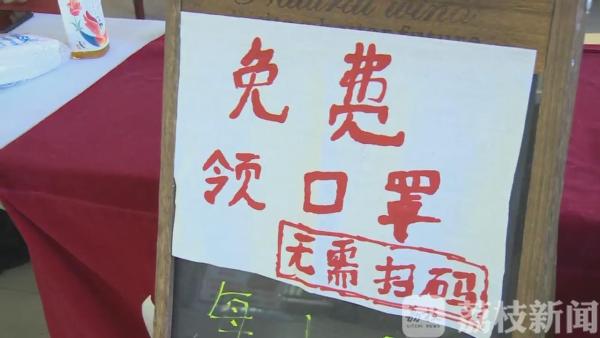 Natural wind
免费
领口罩
无需扫码
每
荔枝新闻